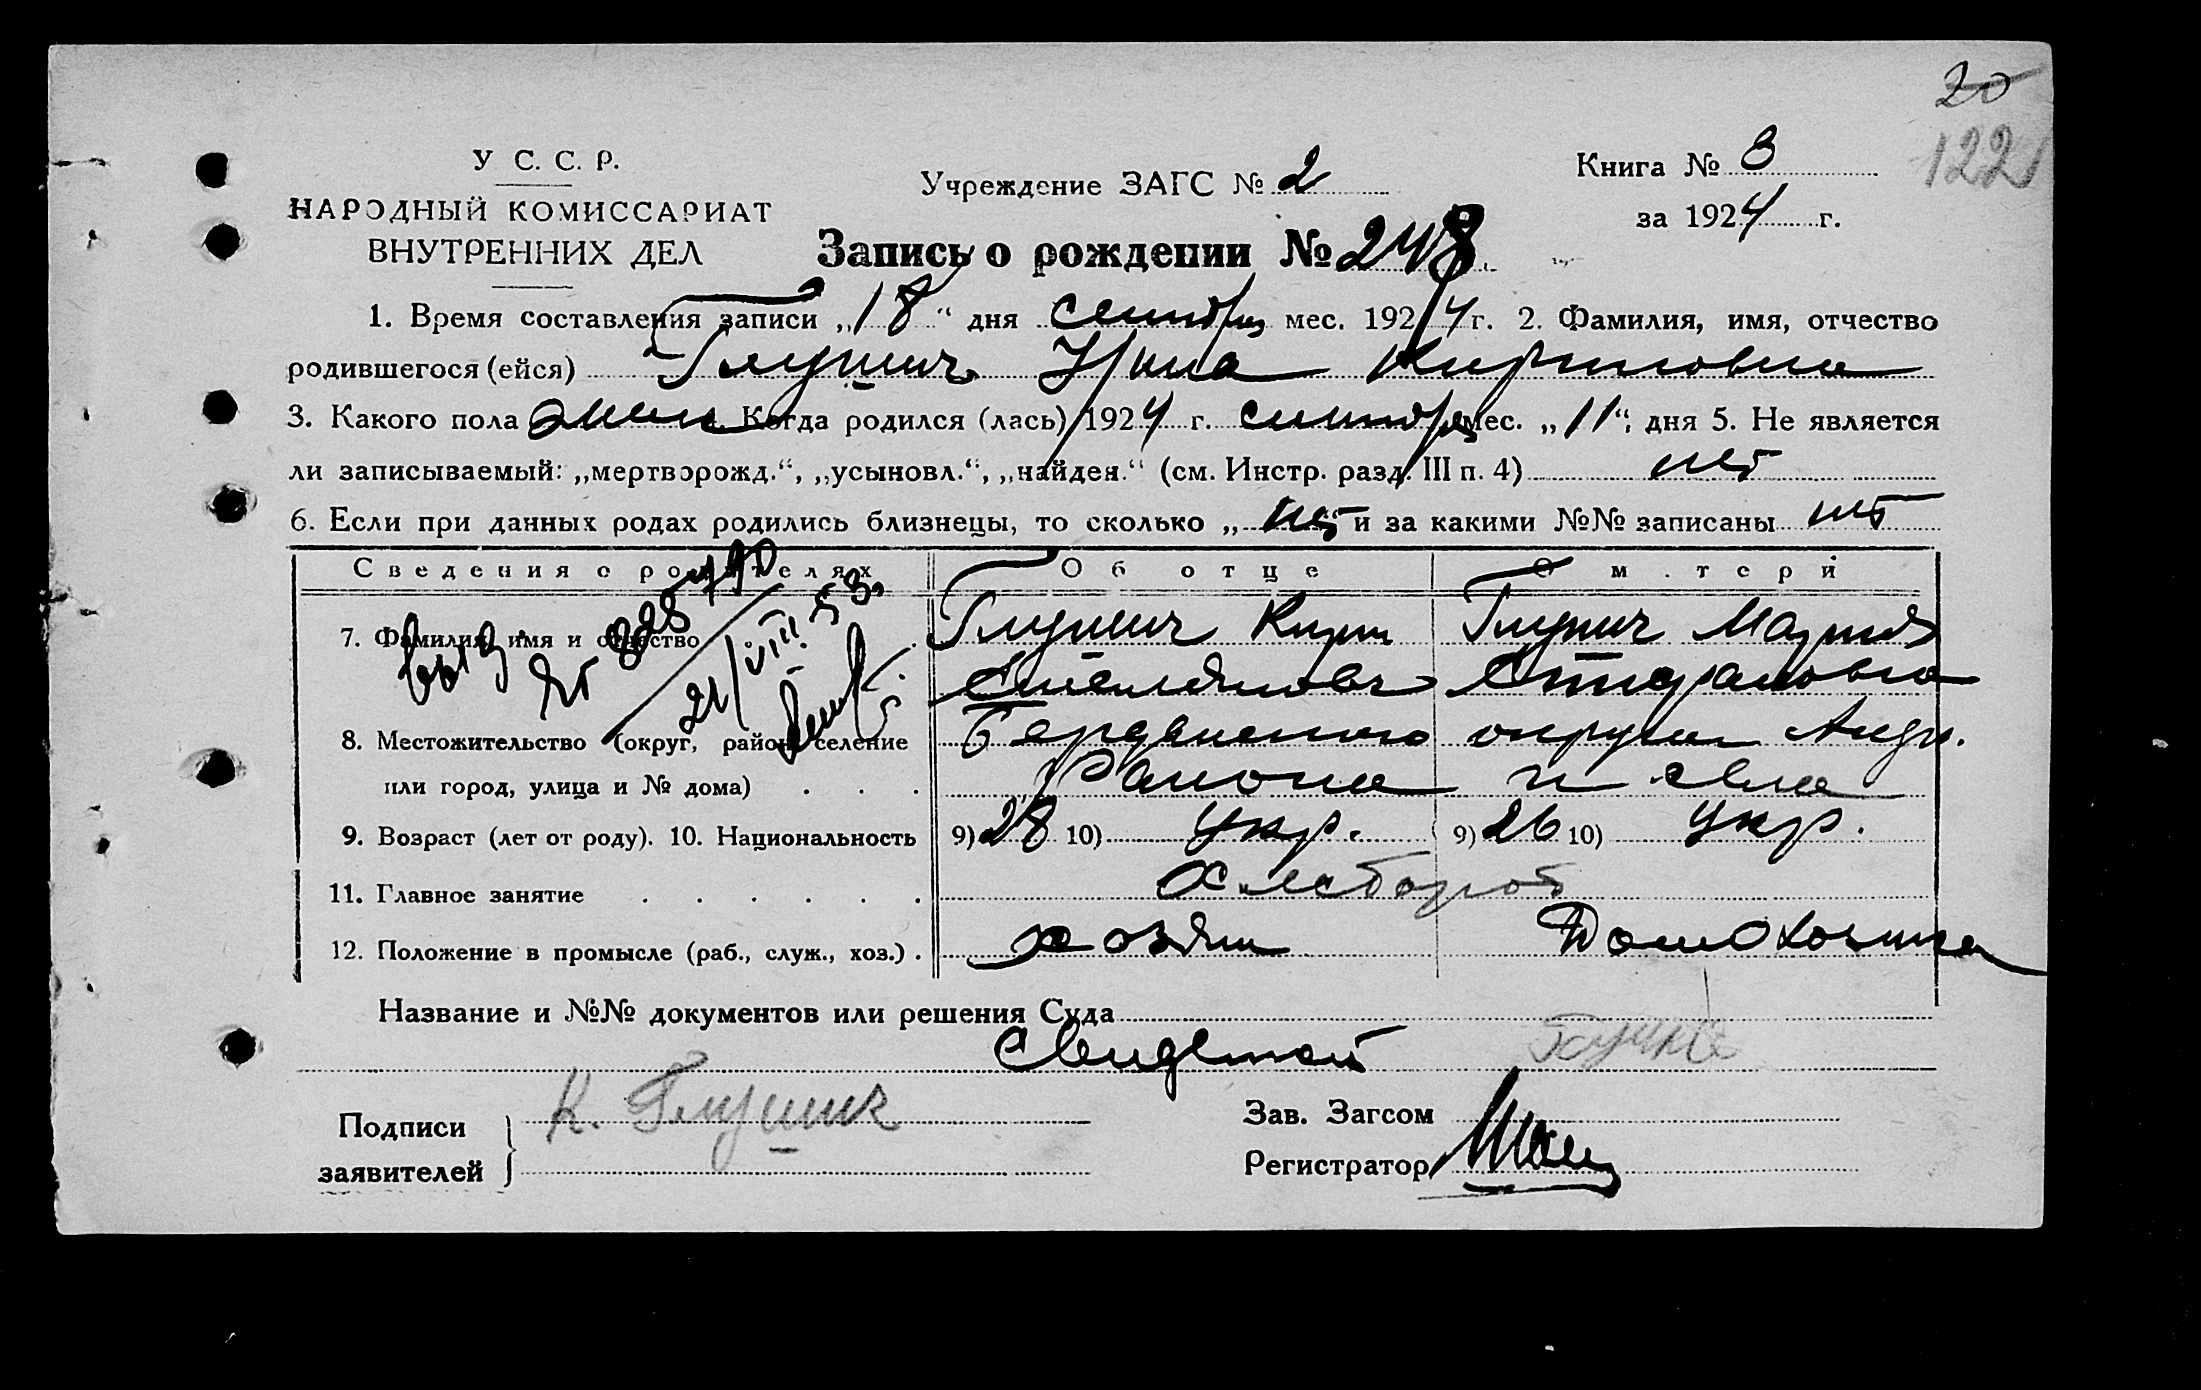 20
122
У С. С. Р.
НАРОДНЫЙ КОМИССАРИАТ
ВНУТРЕННИХ ДЕЛ
Учреждение ЗАГС № 2
Книга № 3
за 1924 г.
Запись о рождении № 248
1. Время составления записи „18“ дня сентября мес. 1924 г. 2. Фамилия, имя, отчество
родившегося (ейся) Глушич Ирина Кирилловна
3. Какого пола жен. Когда родился (лась) 1924 г. сентября мес. „11“; дня 5. Не является
ли записываемый: „мертворожд.“, „усыновл.“, „найден.“ (см. Инстр. разд. III п. 4) нет
6. Если при данных родах родились близнецы, то сколько „нет“ и за какими №№ записаны нет
Сведения о родителях Об отце О матери
7. Фамилия, имя и отчество Глушич Кирил Глушич Мария
Емельянович
8. Местожительство (округ, район, селение Бердянского округа Андр.
или город, улица и № дома) Района и села
9. Возраст (лет от роду). 10. Национальность 9) 28 10) укр. 9) 26 10) укр.
11. Главное занятие Хлебороб
12. Положение в промысле (раб., служ., хоз.) хозяин Домохозяйка
21/VIII 53
Название и №№ документов или решения Суда
Подписи
заявителей К. Глушич
Зав. Загсом
Регистратор